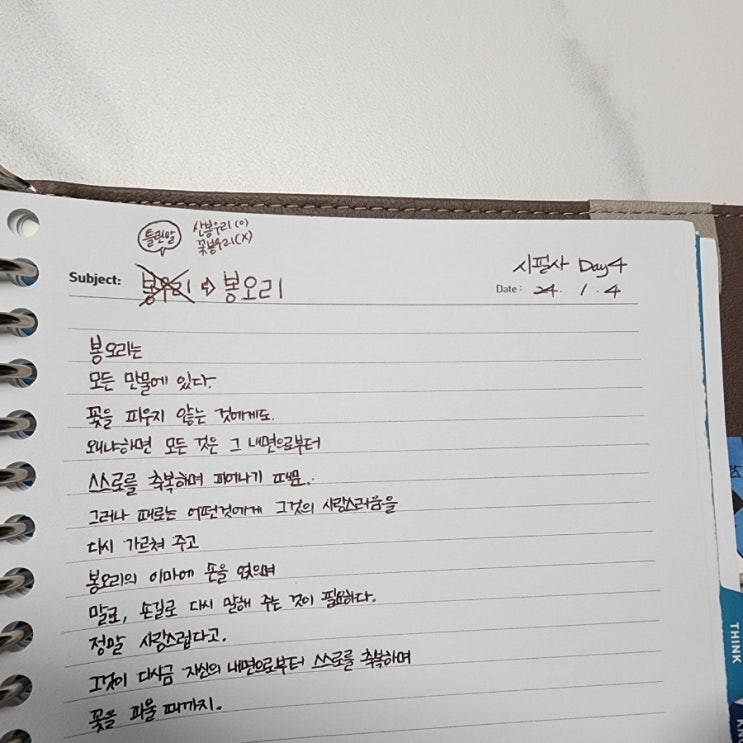 틀린말
산봉우리(O)
꽃봉우리(X)
Subject: 봉우리 ⇨ 봉오리
시필사 Day4
Date: 24. 1. 4
봉오리는
모든 만물에 있다.
꽃을 피우지 않는 것에게도.
왜냐하면 모든 것은 그 내면으로부터
스스로를 축복하며 피어나기 때문.
그러나 때로는 어떤것에게 그것의 사랑스러움을
다시 가르쳐 주고
봉오리의 이마에 손을 얹으며
말로, 손길로 다시 말해 주는 것이 필요하다.
정말 사랑스럽다고.
그것이 다시금 자신의 내면으로부터 스스로를 축복하며
꽃을 피울 때까지.
THINK